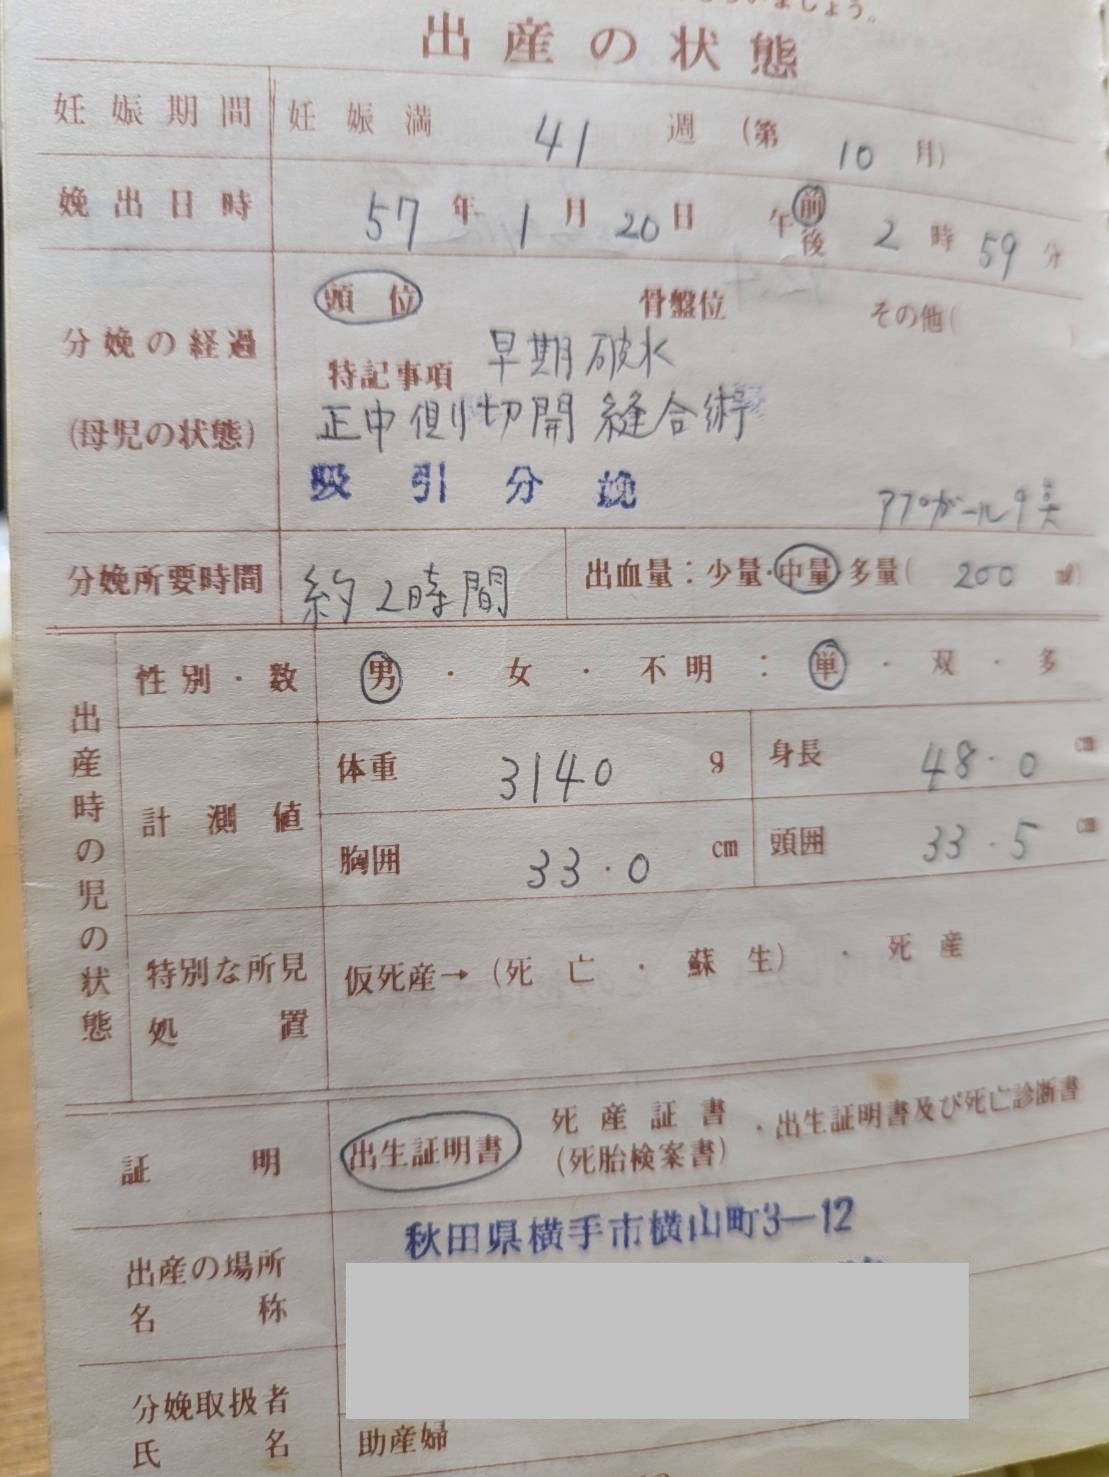 ましょう。
出産の状態
妊娠期間 妊娠満 41 週 (第 10 月)
娩出日時 57年 1月 20日 午前後 2時 59分
頭位 骨盤位 その他( )
分娩の経過 特記事項 早期破水
(母児の状態) 正中側切開 縫合術
吸引分娩
アプガール9点
分娩所要時間 約2時間 出血量:少量・中量・多量( 200 ml)
出産時の児の状態
性別・数 男・女・不明:単・双・多
計測値 体重 3140 g 身長 48.0 cm
胸囲 33.0 cm 頭囲 33.5 cm
特別な所見 仮死産→(死亡・蘇生)・死産
処置
証明 出生証明書 死産証書 ・出生証明書及び死亡診断書
(死胎検案書)
秋田県横手市横山町3-12
出産の場所
名称
分娩取扱者
氏名 助産婦